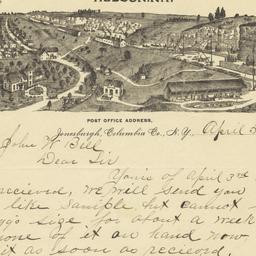 POST OFFICE ADDRESS,
Jonesburgh, Columbia Co., N.Y., April 5
John W Bill
Dear Sir
Yours of April 3rd
recieved, we will send you
like sample, but cannot
egg size for about a week
none of it on hand now,
it as soon as recieved,